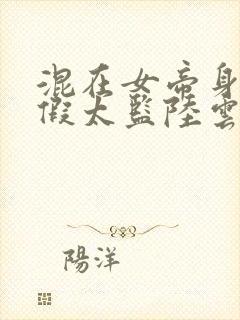 混在女帝身
假太監陸雲
陽洋